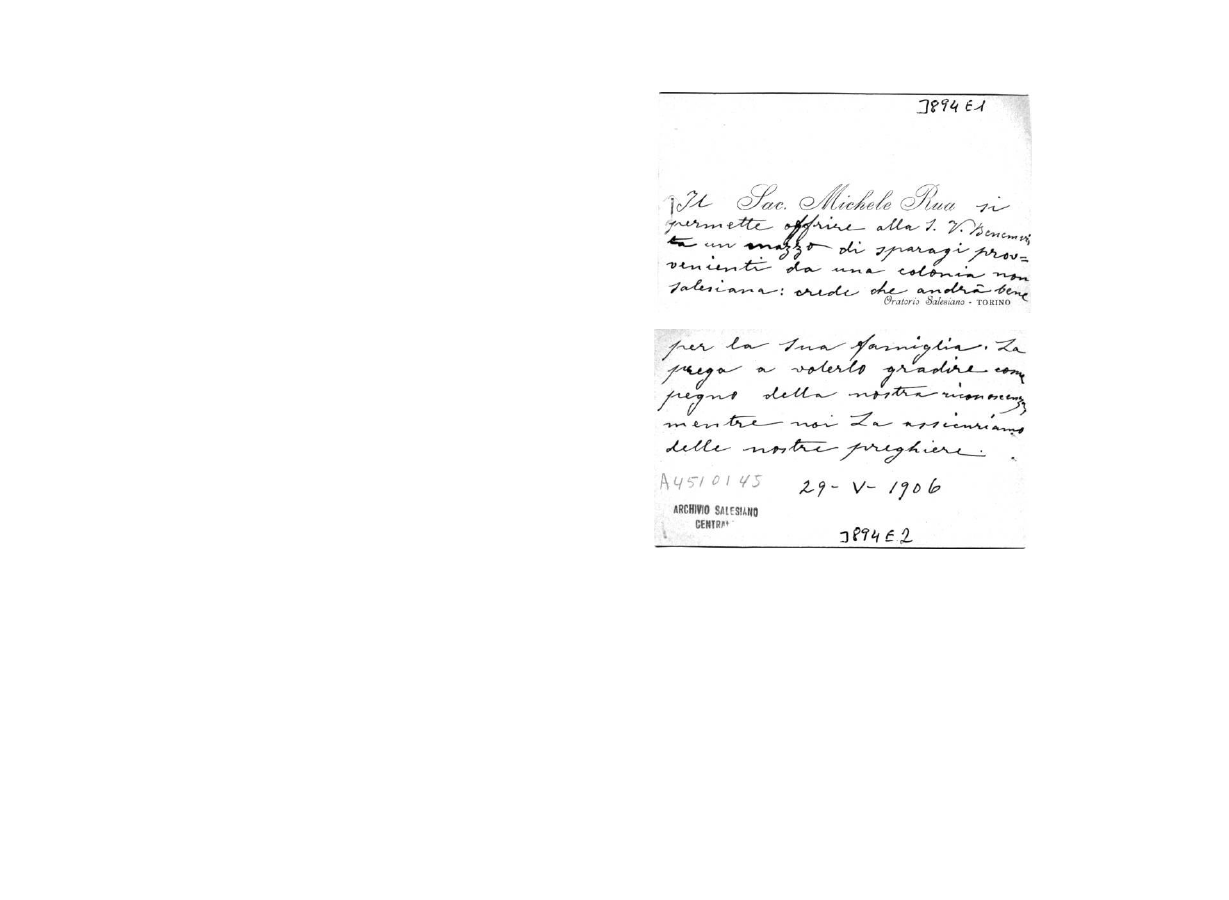 3894 E1
Il Sac. Michele Rua si
permette offrire alla S. V. Benemeri
ta un mazzo di sparagi prov=
venienti da una colonia non
salesiana: crede che andrà bene
Oratorio Salesiano - TORINO
per la sua famiglia. La
prega a volerlo gradire come
pegno della nostra riconoscenza
mentre noi La assicuriamo
delle nostre preghiere.
A4510145
29- V- 1906
ARCHIVIO SALESIANO
3894 E 2